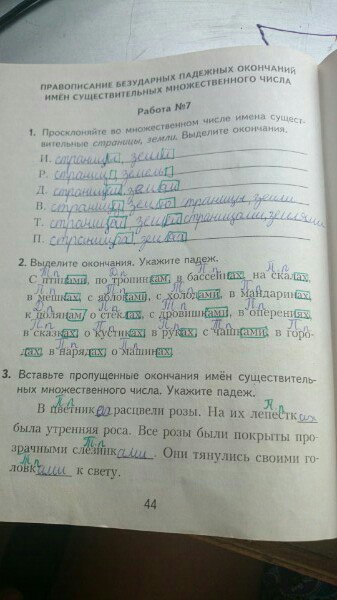 ПРАВОПИСАНИЕ БЕЗУДАРНЫХ ПАДЕЖНЫХ ОКОНЧАНИЙ
ИМЁН СУЩЕСТВИТЕЛЬНЫХ МНОЖЕСТВЕННОГО ЧИСЛА
Работа №7
1. Просклоняйте во множественном числе имена сущест-
вительные страницы, земли. Выделите окончания.
И. страницы, земли
Р. страниц, земель
Д.
В. страницы, земли
Т. страницами, землями
П.
2. Выделите окончания. Укажите падеж.
Т.п. Д.п. П.п. П.п.
С птицами, по тропинкам, в бассейнах, на скалах,
П.п. Т.п. Т.п. П.п.
в мешках, с яблоками, с холодами, в мандаринах,
Д.п. П.п. Т.п. П.п.
к полянам, о стёклах, с дровишками, в оперениях,
П.п. П.п. П.п. Т.п. П.п.
в сказках, о кустиках, в руках, с чашками, в горо-
П.п. П.п.
дах, в нарядах, о машинах.
3. Вставьте пропущенные окончания имён существитель-
ных множественного числа. Укажите падеж.
П.п. П.п.
В цветниках расцвели розы. На их лепестках
была утренняя роса. Все розы были покрыты про-
Т.п.
зрачными слезинками. Они тянулись своими го-
Т.п.
ловками к свету.
44